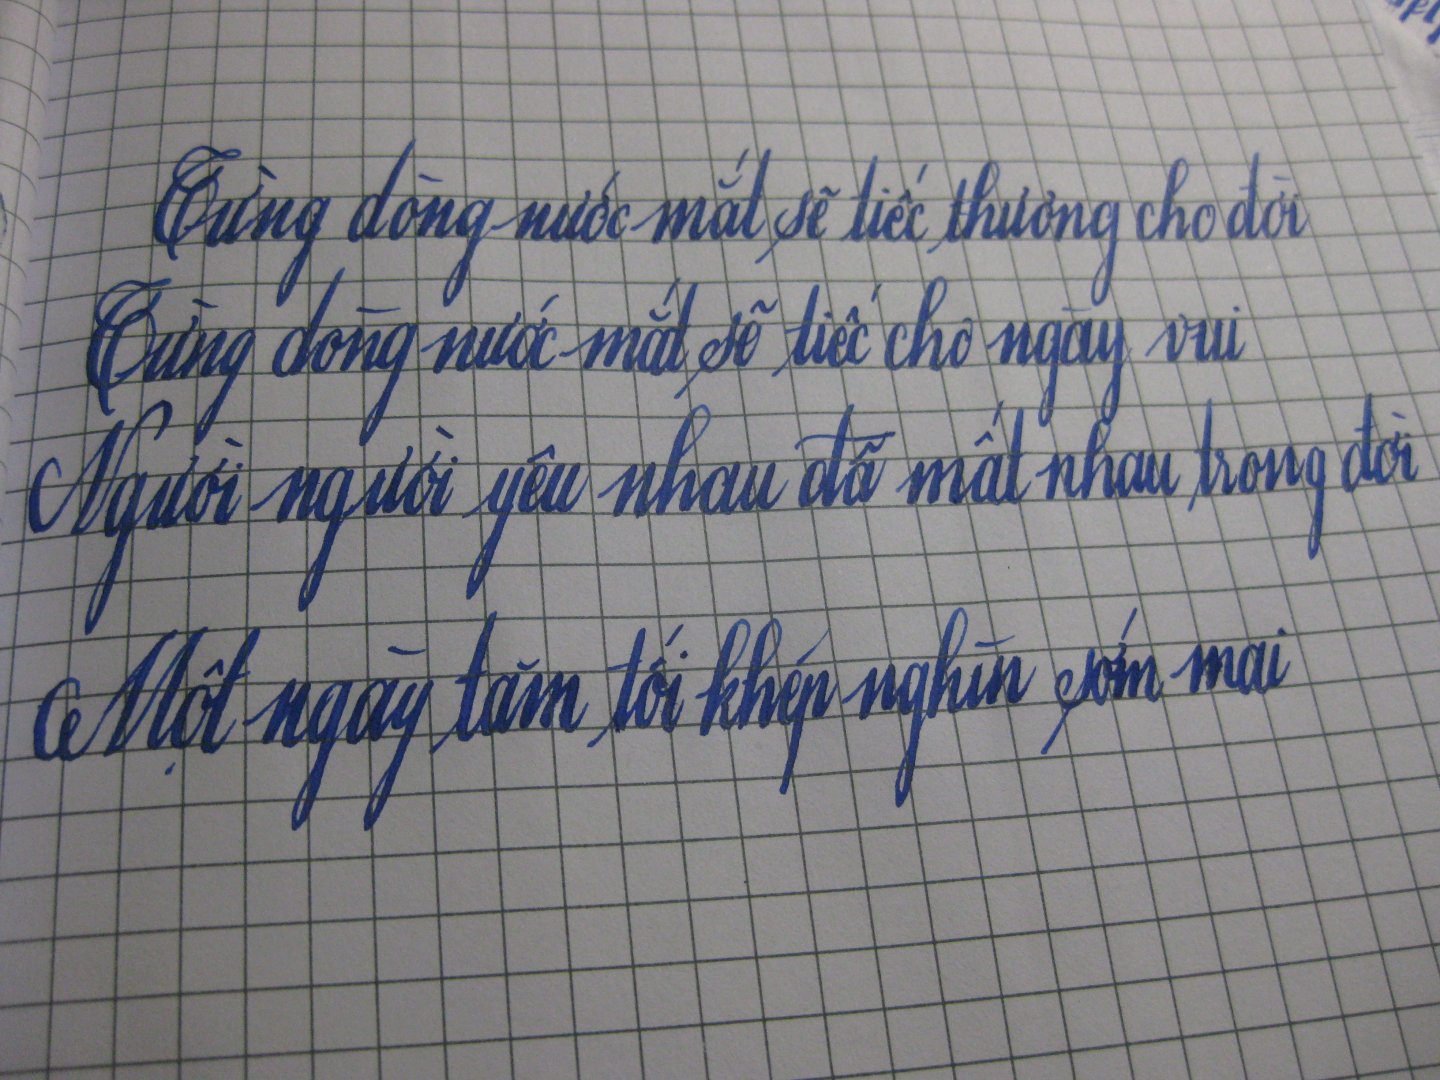 Từng dòng nước mắt sẽ tiếc thương cho đời
Từng dòng nước mắt sẽ tiếc cho ngày vui
Người người yêu nhau đã mất nhau trong đời
Một ngày tăm tối khép nghìn sớm mai